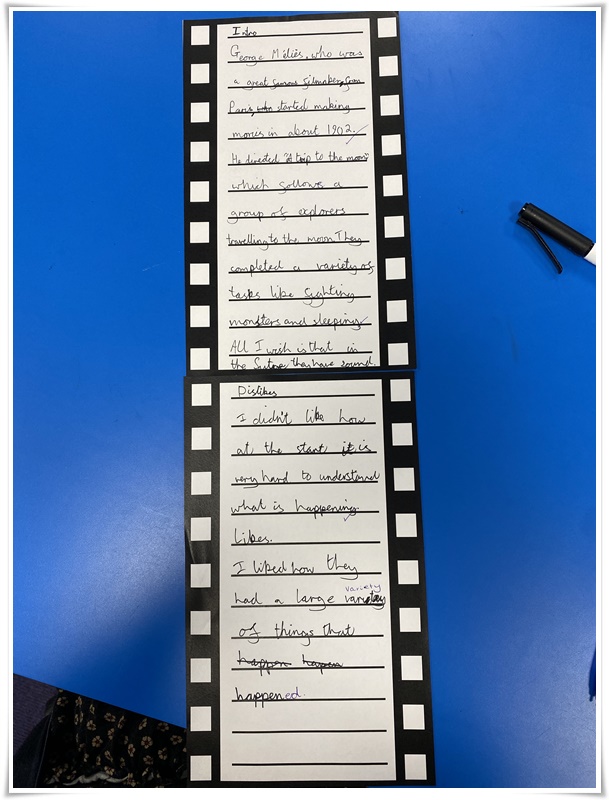 Intro
George Méliès, who was
a great famous filmaker, from
Paris, started making
movies in about 1902.
He directed "A trip to the moon"
which follows a
group of explorers
travelling to the moon. They
completed a variety of
tasks like fighting
monsters and sleeping.
All I wish is that in
the future they have sound.
Dislikes
I didn't like how
at the start it is
very hard to understand
what is happening.
Likes.
I liked how they
variety
had a large variety
of things that
happen hapen
happened.